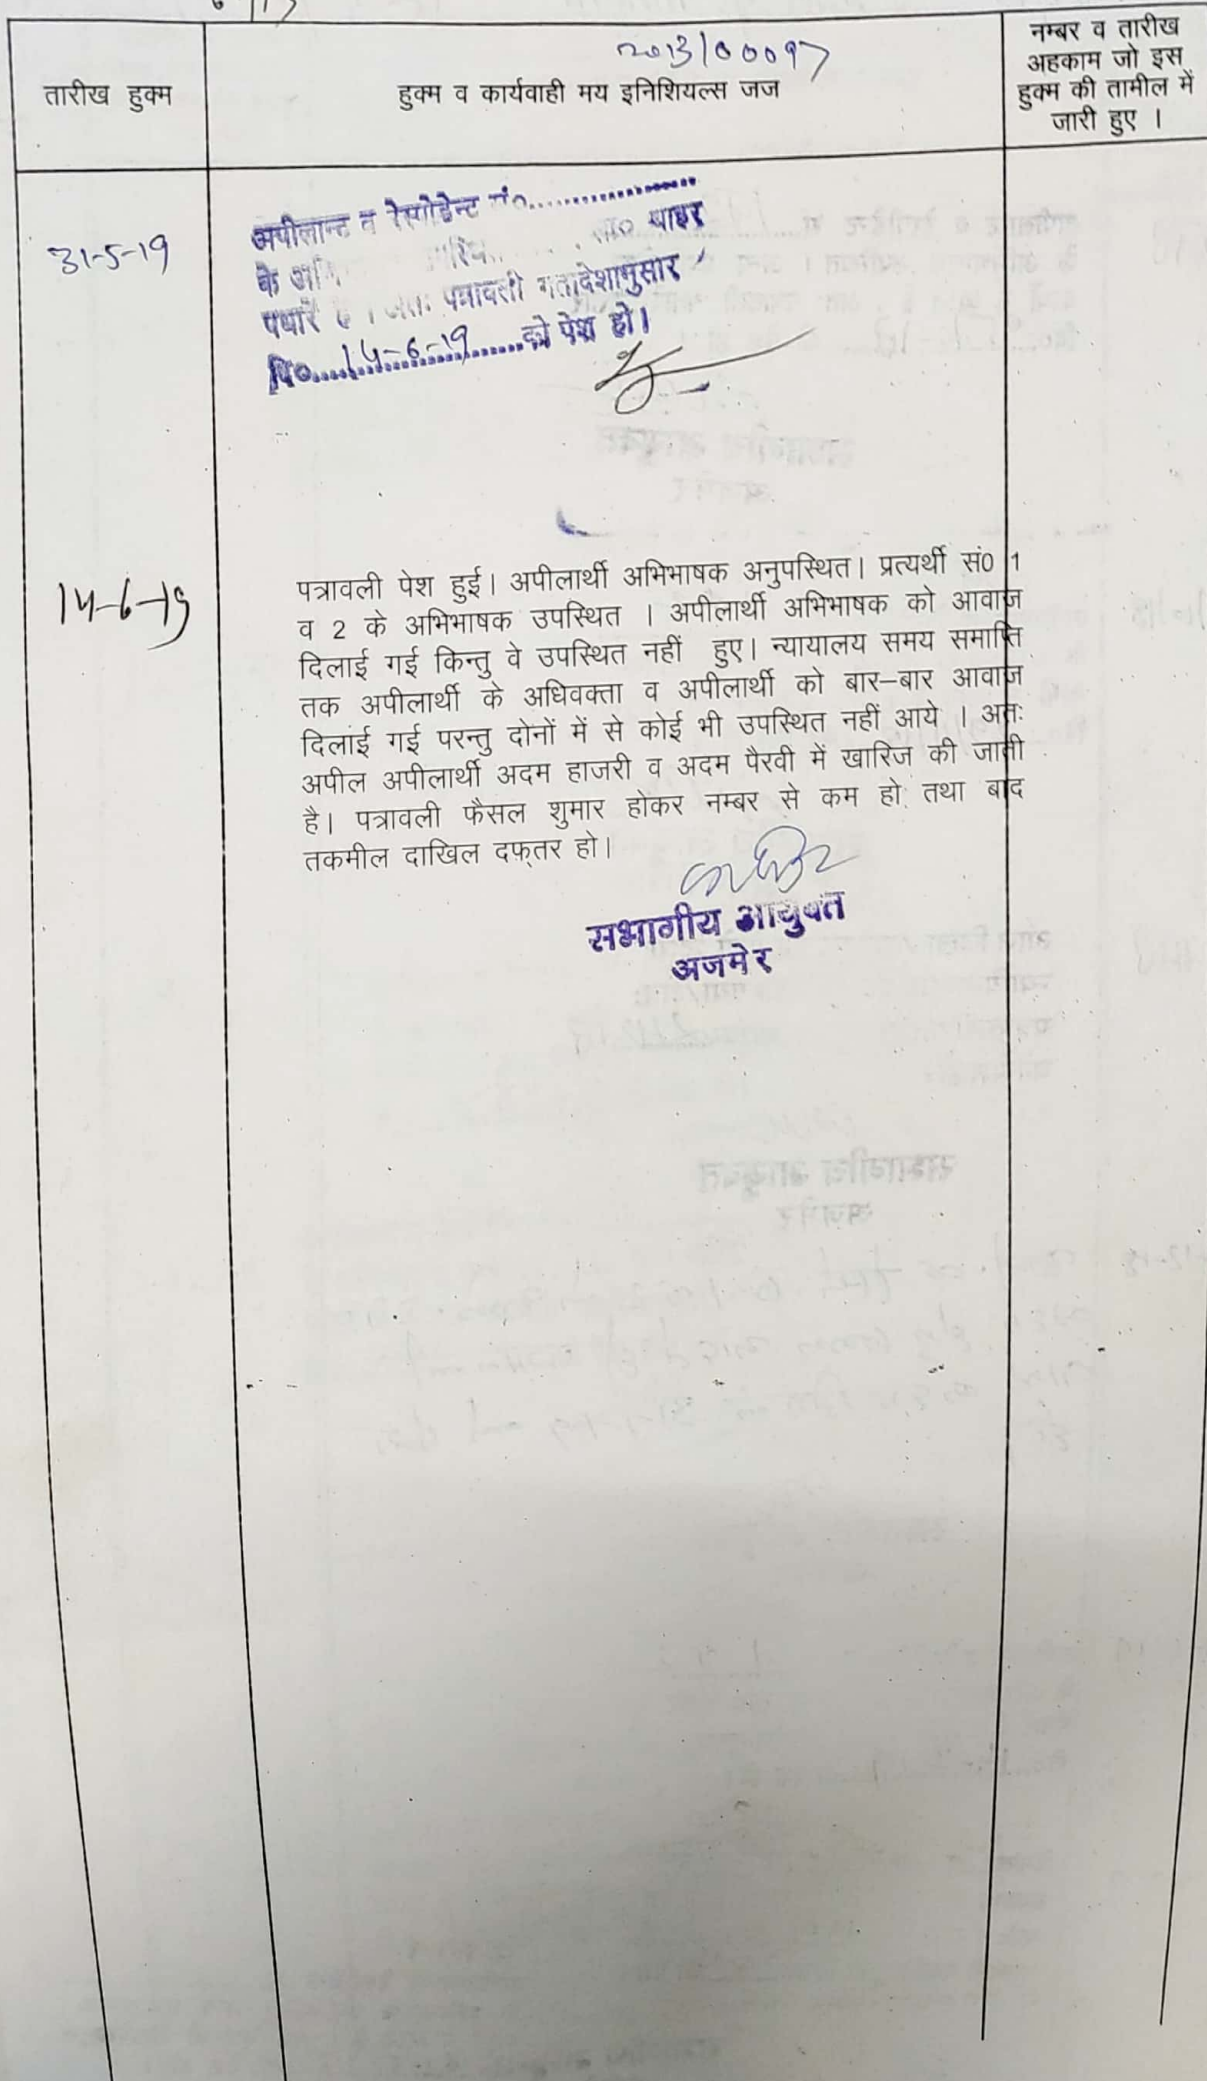 2013/00097
तारीख हुक्म
हुक्म व कार्यवाही मय इनिशियल्स जज
नम्बर व तारीख
अहकाम जो इस
हुक्म की तामील में
जारी हुए ।
31-5-19
अपीलान्ट व रेस्पोडेन्ट नं०....................
के
पधारे । अतः पत्रावली गतादेशानुसार
दि०....14-6-19.......को पेश हो।
14-6-19
पत्रावली पेश हुई। अपीलार्थी अभिभाषक अनुपस्थित। प्रत्यर्थी सं0 1
व 2 के अभिभाषक उपस्थित । अपीलार्थी अभिभाषक को आवाज
दिलाई गई किन्तु वे उपस्थित नहीं हुए। न्यायालय समय समाप्ति
तक अपीलार्थी के अधिवक्ता व अपीलार्थी को बार–बार आवाज
दिलाई गई परन्तु दोनों में से कोई भी उपस्थित नहीं आये । अतः
अपील अपीलार्थी अदम हाजरी व अदम पैरवी में खारिज की जाती
है। पत्रावली फैसल शुमार होकर नम्बर से कम हो तथा बाद
तकमील दाखिल दफ़्तर हो।
सभागीय आयुक्त
अजमेर